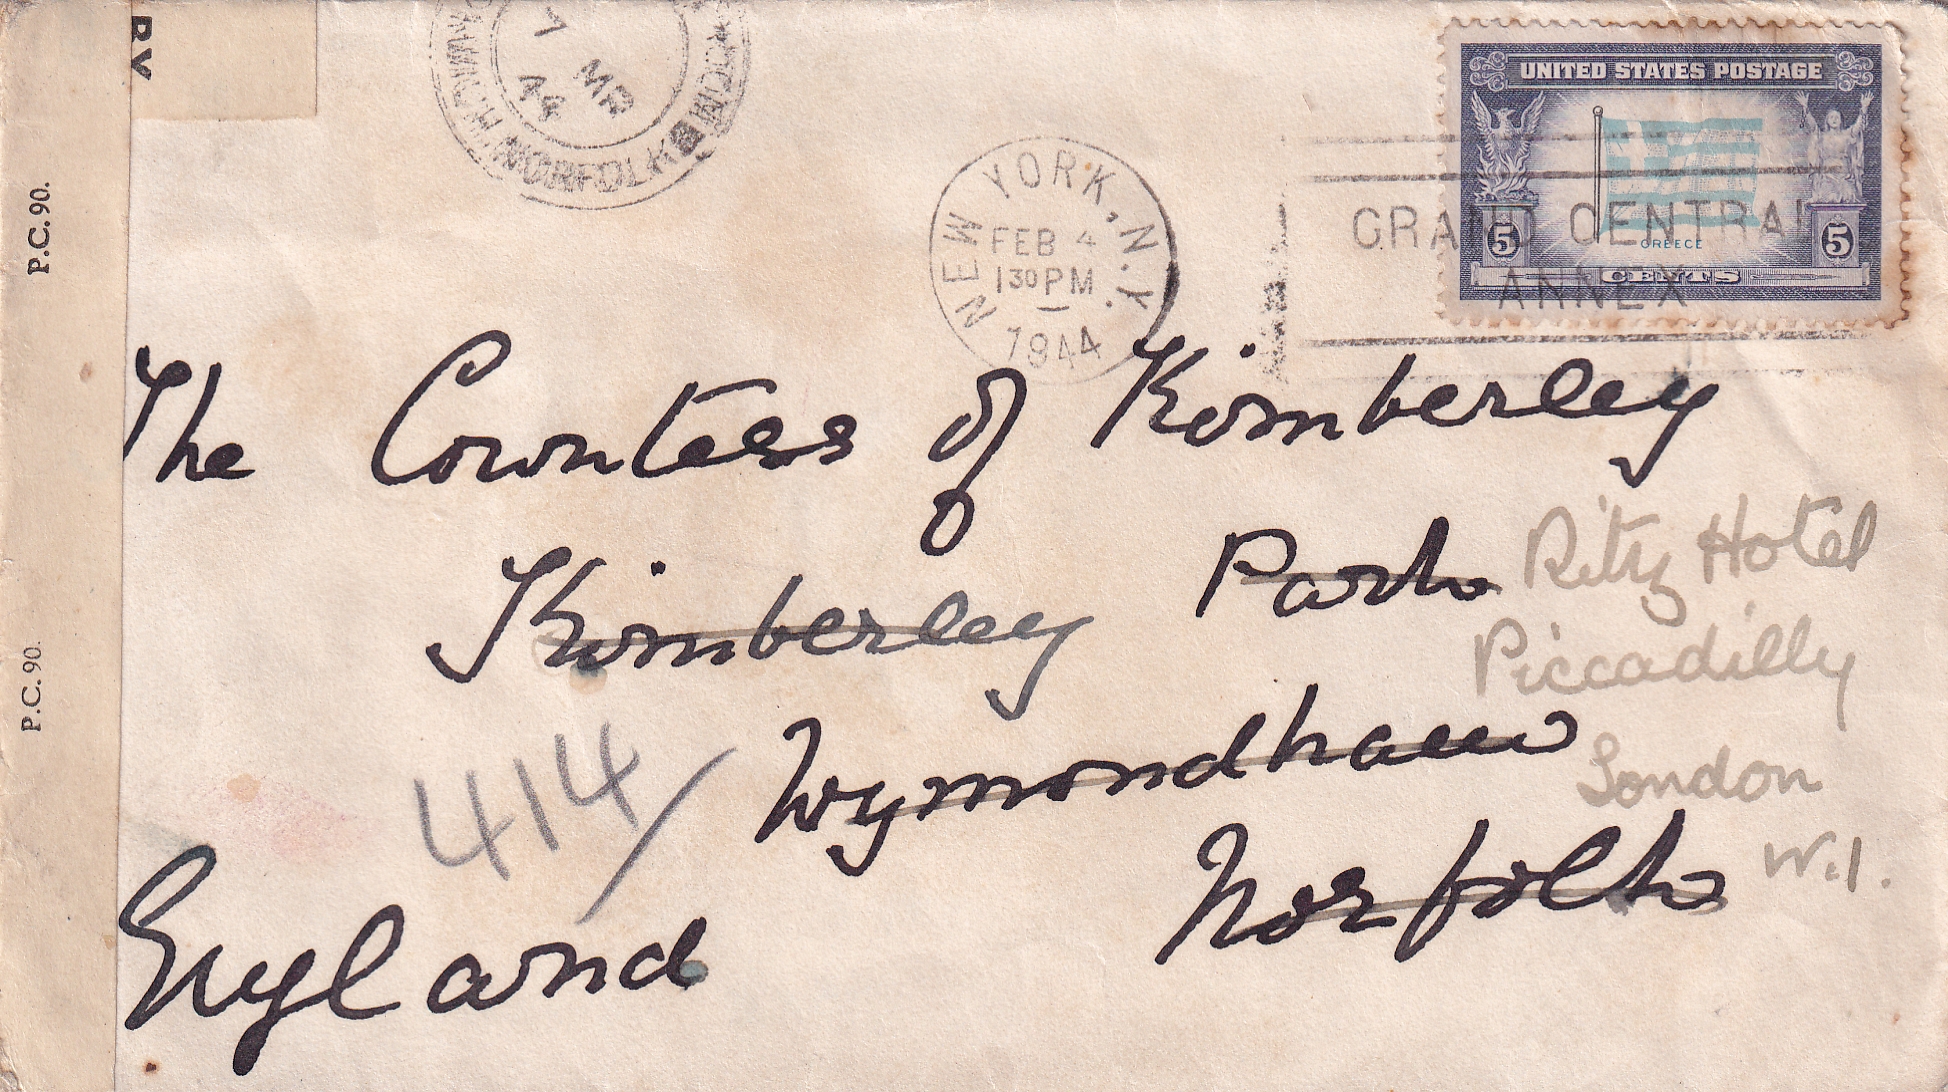 RY
P.C. 90.
P.C. 90.
7 MR
44
WYMONDHAM
NORFOLK
NEW YORK, N.Y.
FEB 4
1 30 PM
1944
GRAND CENTRAL
ANNEX
UNITED STATES POSTAGE
5
GREECE
5
CENTS
The Countess of Kimberley
Kimberley Park
Ritz Hotel
Piccadilly
Wymondham
London
W.1.
Norfolk
414/
England